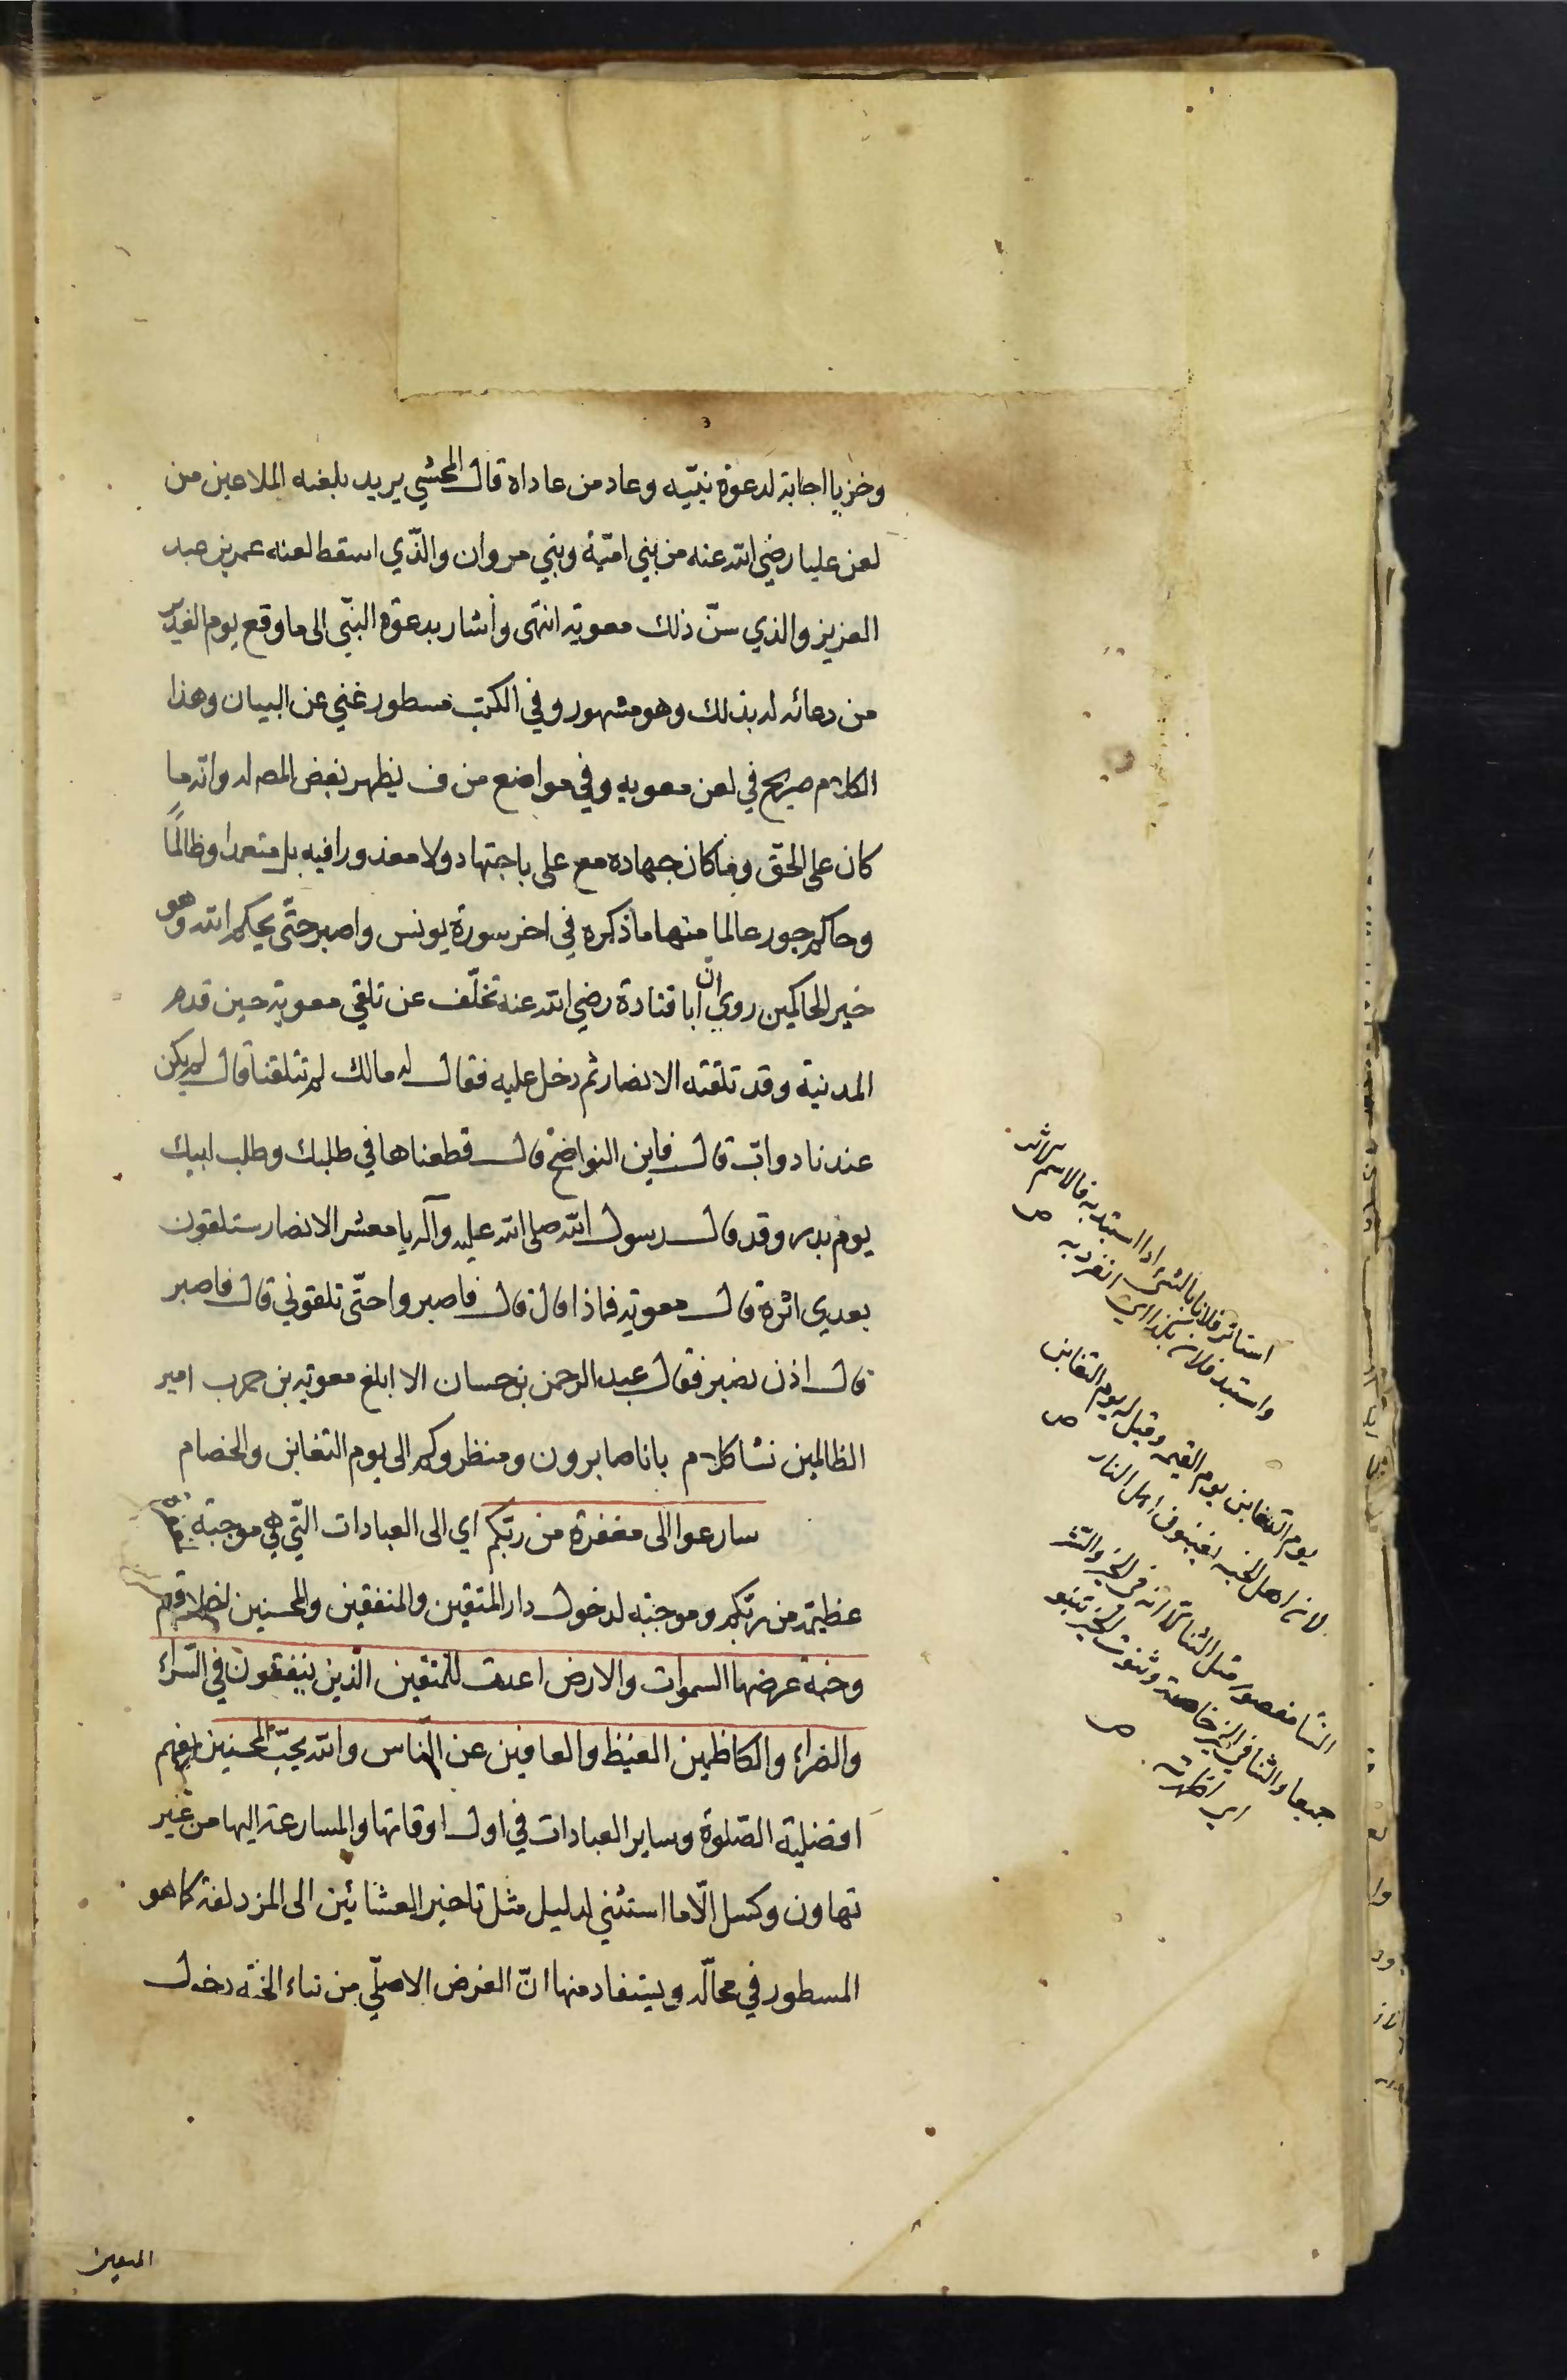 وخزيا اجابة لدعوة نبيّه وعاد من عاداه قال المحشي يريد بلعنه الملاعين من
لعن عليا رضي الله عنه من بني اميّة وبني مروان والذّي اسقط لعنه عمر بن عبد
العزيز والذي سنّ ذلك معوية انتهى وأشار بدعوة النبّي الى ما وقع يوم الغدير
من دعائه له بذلك وهو مشهور وفي الكتب مسطور غني عن البيان وهذا
الكلام صريح في لعن معويه وفي مواضع من ف يظهر بغض المص له وانه ما
كان على الحقّ وما كان جهاده مع على باجتهاد ولا معذورا فيه بل متعمدا وظالمًا
وحاكم جور عالما منها ما ذكره في اخر سورة يونس واصبر حتّى يحكم الله وهو
خير الحاكمين روي انّ ابا قتادة رضي الله عنه تخلّف عن تلقي معوية حين قدم
المدنية وقد تلقته الانصار ثم دخل عليه فقال له مالك لم تتلقنا قال لم يكن
عندنا دوابّ قال فاين النواضح قال قطعناها في طلبك وطلب ابيك
يوم بدر وقد قال رسول الله صلى الله عليه وآله يا معشر الانصار ستلقون
بعدي اثرة قال معوية فماذا قال قال فاصبروا حتّى تلقوني قال فاصبر
قال اذن نصبر فقال عبد الرحمن بن حسان الا ابلغ معوية بن حرب امير
الظالمين نثا كلام بانا صابرون ومنظروكم الى يوم التغابن والخصام
سارعوا الى مغفرة من ربّكم اي الى العبادات التّي هي موجبة
عظيمة من ربّكم وموجبه لدخول دار المتقين والمنفقين والمحسنين
وجنة عرضها السموات والارض اعدت للمتقين الّذين ينفقون في السّراء
والضراء والكاظمين الغيظ والعافين عن النّاس والله يحبّ المحسنين
افضلية الصّلوة وساير العبادات في اول اوقاتها والمسارعة اليها من غير
تهاون وكسل الّا ما استثني لدليل مثل تاخير العشائين الى المزدلفة كما هو
المسطور في محالّه ويستفاد منها انّ الغرض الاصلّي من بناء الجنّة دخول
استاثر فلان بالشى اذا استبد به والاسم الاثرة
واستبد فلان بكذا اي انفرد به ص
يوم التغابن يوم القيمة وقيل له يوم التغابن
لان اهل الجنه يغبنون اهل النار ص
النثا مقصور مثل الثنا الّا انه في الخير والشر
جميعا والثنا في الخير خاصة ونثوت الخبر
اي اظهرته ص